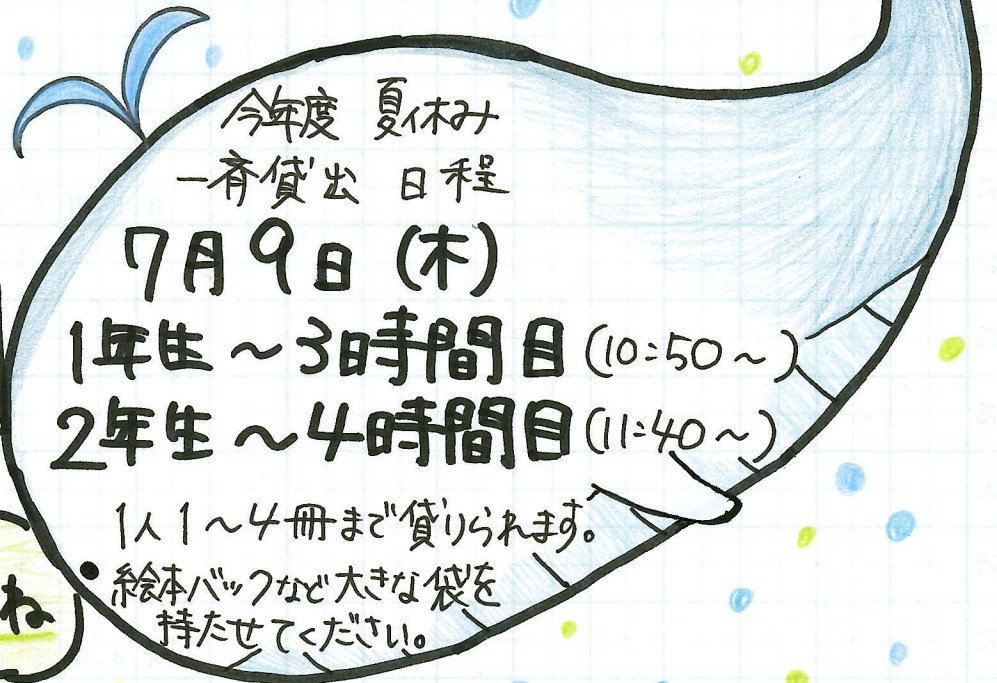 今年度 夏休み
一斉貸出 日程
7月9日(木)
1年生~3時間目(10:50~)
2年生~4時間目(11:40~)
1人1~4冊まで貸りられます。
・絵本バックなど大きな袋を
持たせてください。
ね